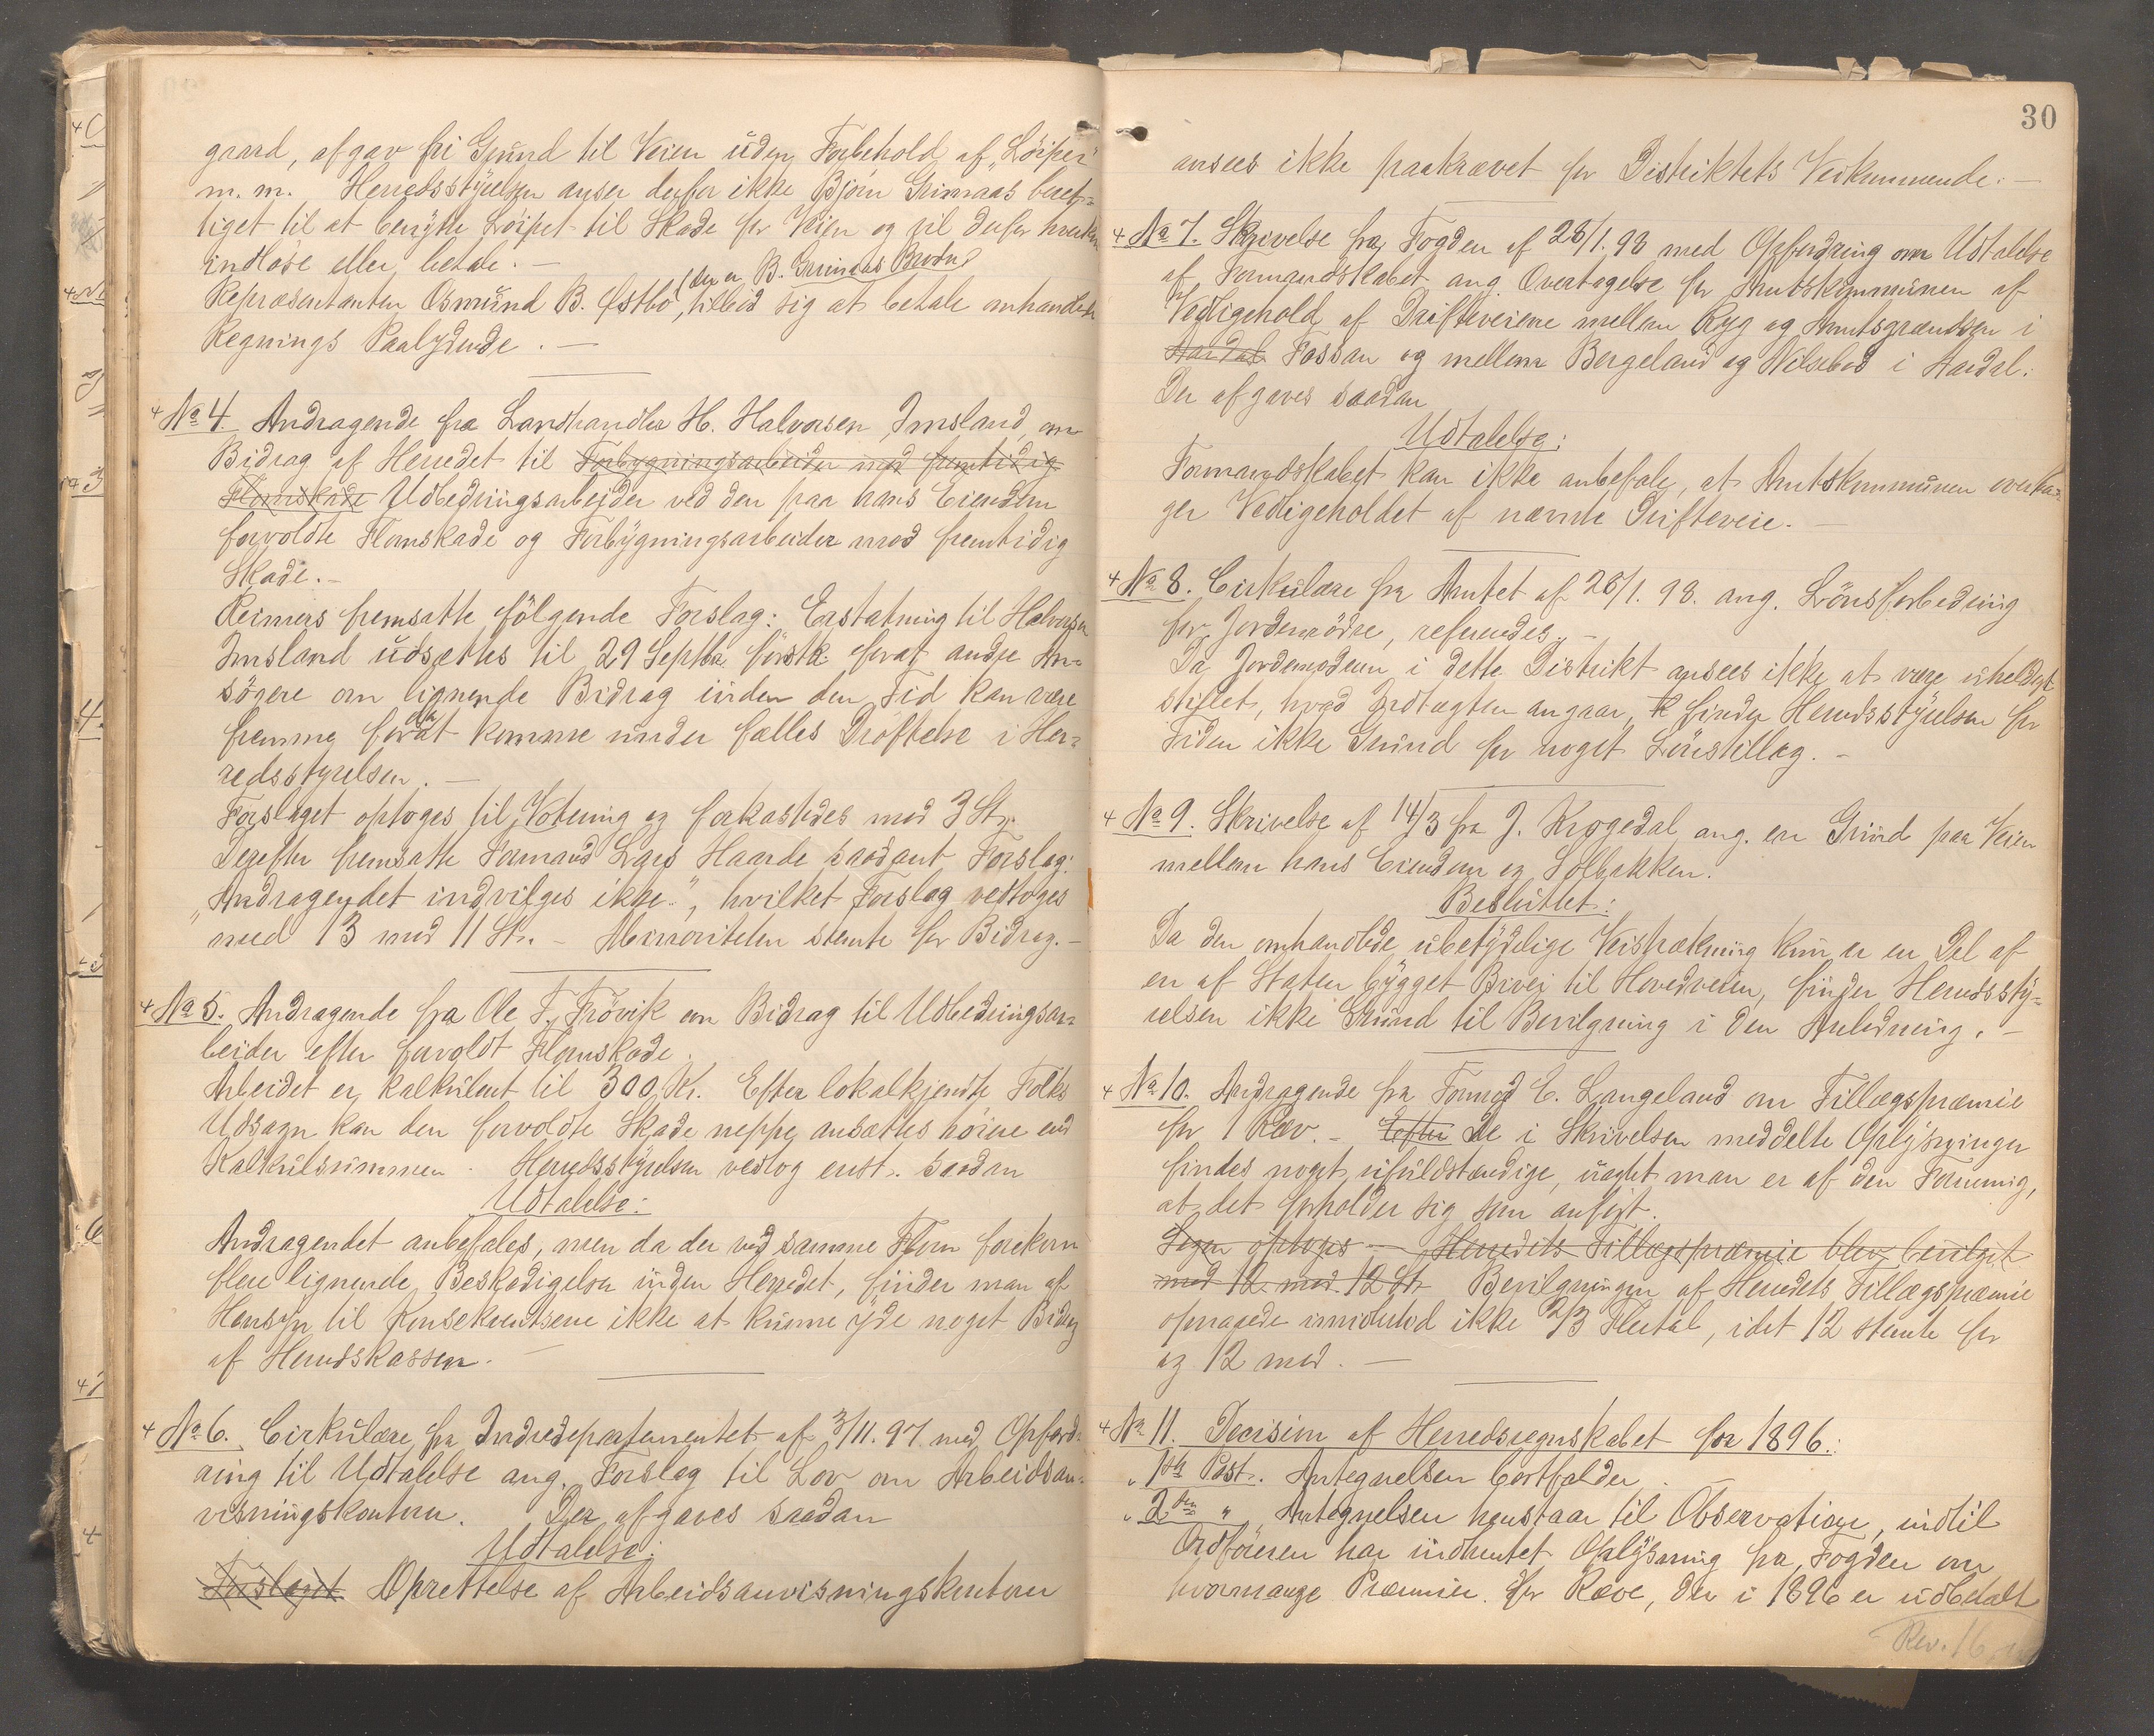 graard, afgav fri Grund til Veien uden Forbehold af "Löipe"
m. m. Herredsstyrelsen anser derfor ikke Björn Grimaas beret-
tiget til at benytte Löipet til Skade for Veien og vil derfor hverken
indlöse eller betale. —
(der er B. Grimaas Broder)
Repræsentanten Osmund B. Østbö, tilböd sig at betale omhandlede
Regnings Paalydende. —
+ No 4. Andragende fra Landhandler H. Halvorsen, Imsland, om
Bidrag af Herredet til Forbygningsarbeider mod fremtidig
Flomskade Udbedringsarbeider ved den paa hans Eiendom
forvoldte Flomskade og Forbygningsarbeider mod fremtidig
Skade. —
Reimers fremsatte fölgende Forslag: Erstatning til Halvorsen
Imsland udsættes til 29 Septbr. förstk. forat andre An-
sögere om lignende Bidrag inden den Tid kan være
fremme for da at komme under fælles Dröftelse i Her-
redsstyrelsen. —
Forslaget optoges til Votering og forkastedes mod 3 St.
Derefter fremsatte Formand Lars Haarde saadant Forslag:
"Andragendet indvilges ikke.", hvilket Forslag vedtoges
med 13 mod 11 St. - Minoriteten stemte for Bidrag. —
+ No 5. Andragende fra Ole T. Frövik om Bidrag til Udbedringsar-
beider efter forvoldt Flomskade.
Arbeidet er kalkuleret til 300 Kr. Efter lokalkjendte Folks
Udsagn kan den forvoldte Skade neppe ansættes höiere end
Kalkulsummen. Herredsstyrelsen vedtog enst. saadan
Udtalelse:
Andragendet anbefales, men da der ved samme Flom forekom
flere lignende Beskadigelser inden Herredet, finder man af
Hensyn til Konsekventsene ikke at kunne yde noget Bidrag
af Herredskassen. —
+ No 6. Cirkulære fra Indredepartementet af 3/11. 97 med Opford-
ring til Udtalelse ang. Forslag til Lov om Arbeidsan-
visningskontorer. Der afgaves saadan
Udtalelse:
Forslaget Oprettelse af Arbeidsanvisningskontorer
30
ansees ikke paakrævet for Distriktets Vedkommende. —
+ No 7. Skrivelse fra Fogden af 28/1. 98 med Opfordring om Udtalelse
af Formandskabet ang. Overtagelse for Amtskommunen af
Vedligehold af Drifteveiene mellem Ryg og Amtsgrændsen i
Aardal Fossan og mellem Bergeland og Nilsebod i Aardal.
Der afgaves saadan
Udtalelse:
Formandskabet kan ikke anbefale, at Amtskommunen overta-
ger Vedligeholdet af nævnte Drifteveie. —
+ No 8. Cirkulære fra Amtet af 28/1. 98. ang. Lönsforbedring
for Jordemödre, referedes. —
Da Jordemoderen i dette Distrikt ansees ikke at være uheldigt
stillet, hvad Indtægten angaar, finder Herredsstyrelsen for
Tiden ikke Grund for noget Lönstillæg. —
+ No 9. Skrivelse af 14/3 fra J. Krogedal ang. en Grind paa Veien
mellem hans Eiendom og Solbakken.
Besluttet:
Da den omhandlede ubetydelige Veistrækning kun er en Del af
en af Staten bygget Bivei til Hovedveien, finder Herredssty-
relsen ikke Grund til Bevilgning i den Anledning. —
+ No 10. Andragende fra Formd E. Langeland om Tillægspræmie
for 1 Ræv. - Efter De i Skrivelsen meddelte Oplysninger
findes noget ufuldstændige, uagtet man er af den Formening,
at det forholder sig som anfört.
Sagen optoges — Herredets Tillægspræmie blev bevilget
med 12 mod 12 St. Bevilgningen af Herredets Tillægspræmie
opnaaede imidlertid ikke 2/3 Flertal, idet 12 stemte for
og 12 mod. —
+ No 11. Decision af Herredsregnskabet for 1896.:
" 1ste Post. Antegnelsen bortfalder.
" 2den " Antegnelsen henstaar til Observation, indtil
Ordföreren har indhentet Oplysning fra Fogden om
hvormange Præmier for Ræve, der i 1896 er udbetalt
Rev. 16